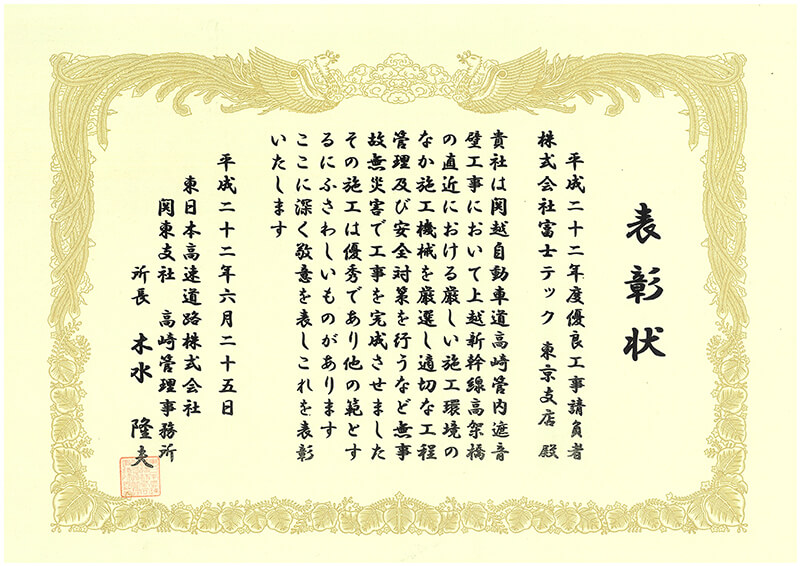 表彰状
平成二十二年度優良工事請負者
株式会社富士テック 東京支店 殿
貴社は関越自動車道高崎管内遮音
壁工事において上越新幹線高架橋
の直近における厳しい施工環境の
なか施工機械を厳選し適切な工程
管理及び安全対策を行うなど無事
故無災害で工事を完成させました
その施工は優秀であり他の範とす
るにふさわしいものがあります
ここに深く敬意を表しこれを表彰
いたします
平成二十二年六月二十五日
東日本高速道路株式会社
関東支社 高崎管理事務所
所長 木水 隆夫